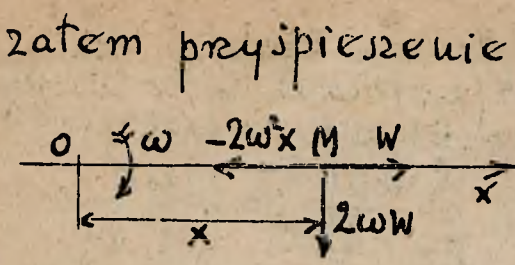 zatem przyśpieszenie
O ω -2ω²x M W
x
x 2ωW